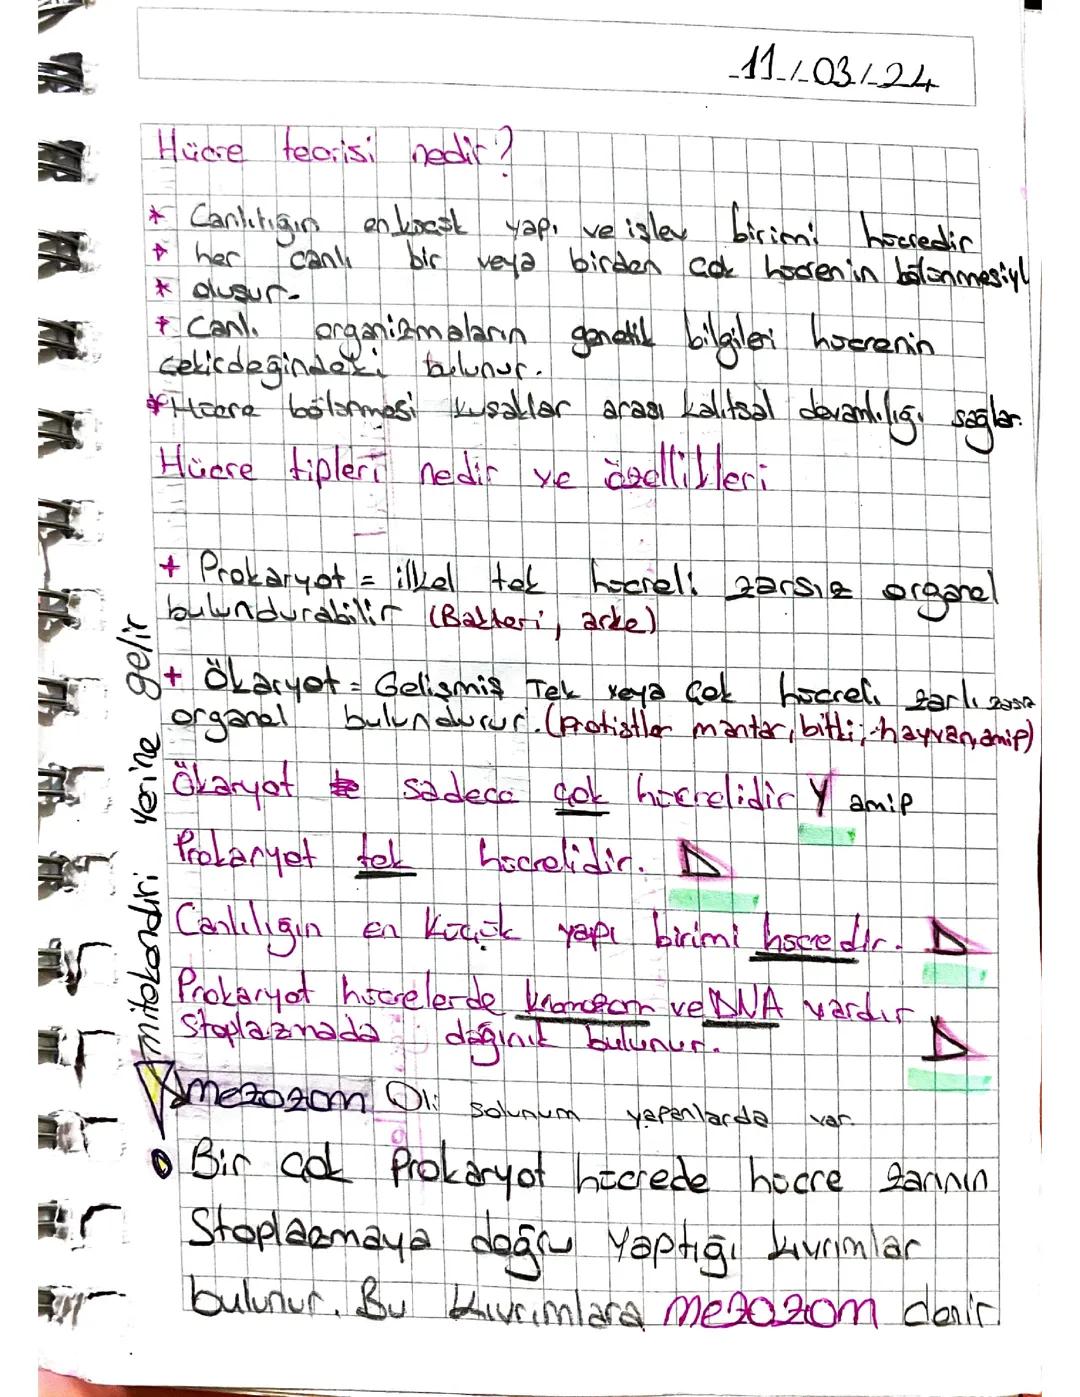 11/03/24
Hücre teorisi nedir?
* Canlılığın en küçük yapı ve işlev birimi hücredir
* her canlı bir veya birden çok hücren'in bölünmesiyl
* oluşur.
* Canlı organizmaların genetik bilgileri hücrenin
çekirdeğindeki bulunur.
* Hücre bölünmesi kuşaklar arası kalıtsal devamlılığı sağlar.
Hücre tipleri nedir ve özellikleri
+ Prokaryot = ilkel tek hücreli zarsız organel
bulundurabilir (Bakteri, arke)
+ Ökaryot = Gelişmiş Tek veya Çok hücreli zarlı zarsız
organel bulundurur. (protistler mantar, bitki, hayvan, amip)
Ökaryot sadece çok hücrelidir Y amip
Prokaryot tek hücrelidir. D
Canlılığın en küçük yapı birimi hücredir. D
Prokaryot hücrelerde kromozom ve DNA vardır
Stoplazmada dağınık bulunur. D
mezozom O₂li solunum yapanlarda var.
Bir çok Prokaryot hücrede hücre zarının
Stoplazmaya doğru yaptığı kıvrımlar
bulunur. Bu kıvrımlara mezozom denir
mitokondri yerine gelir